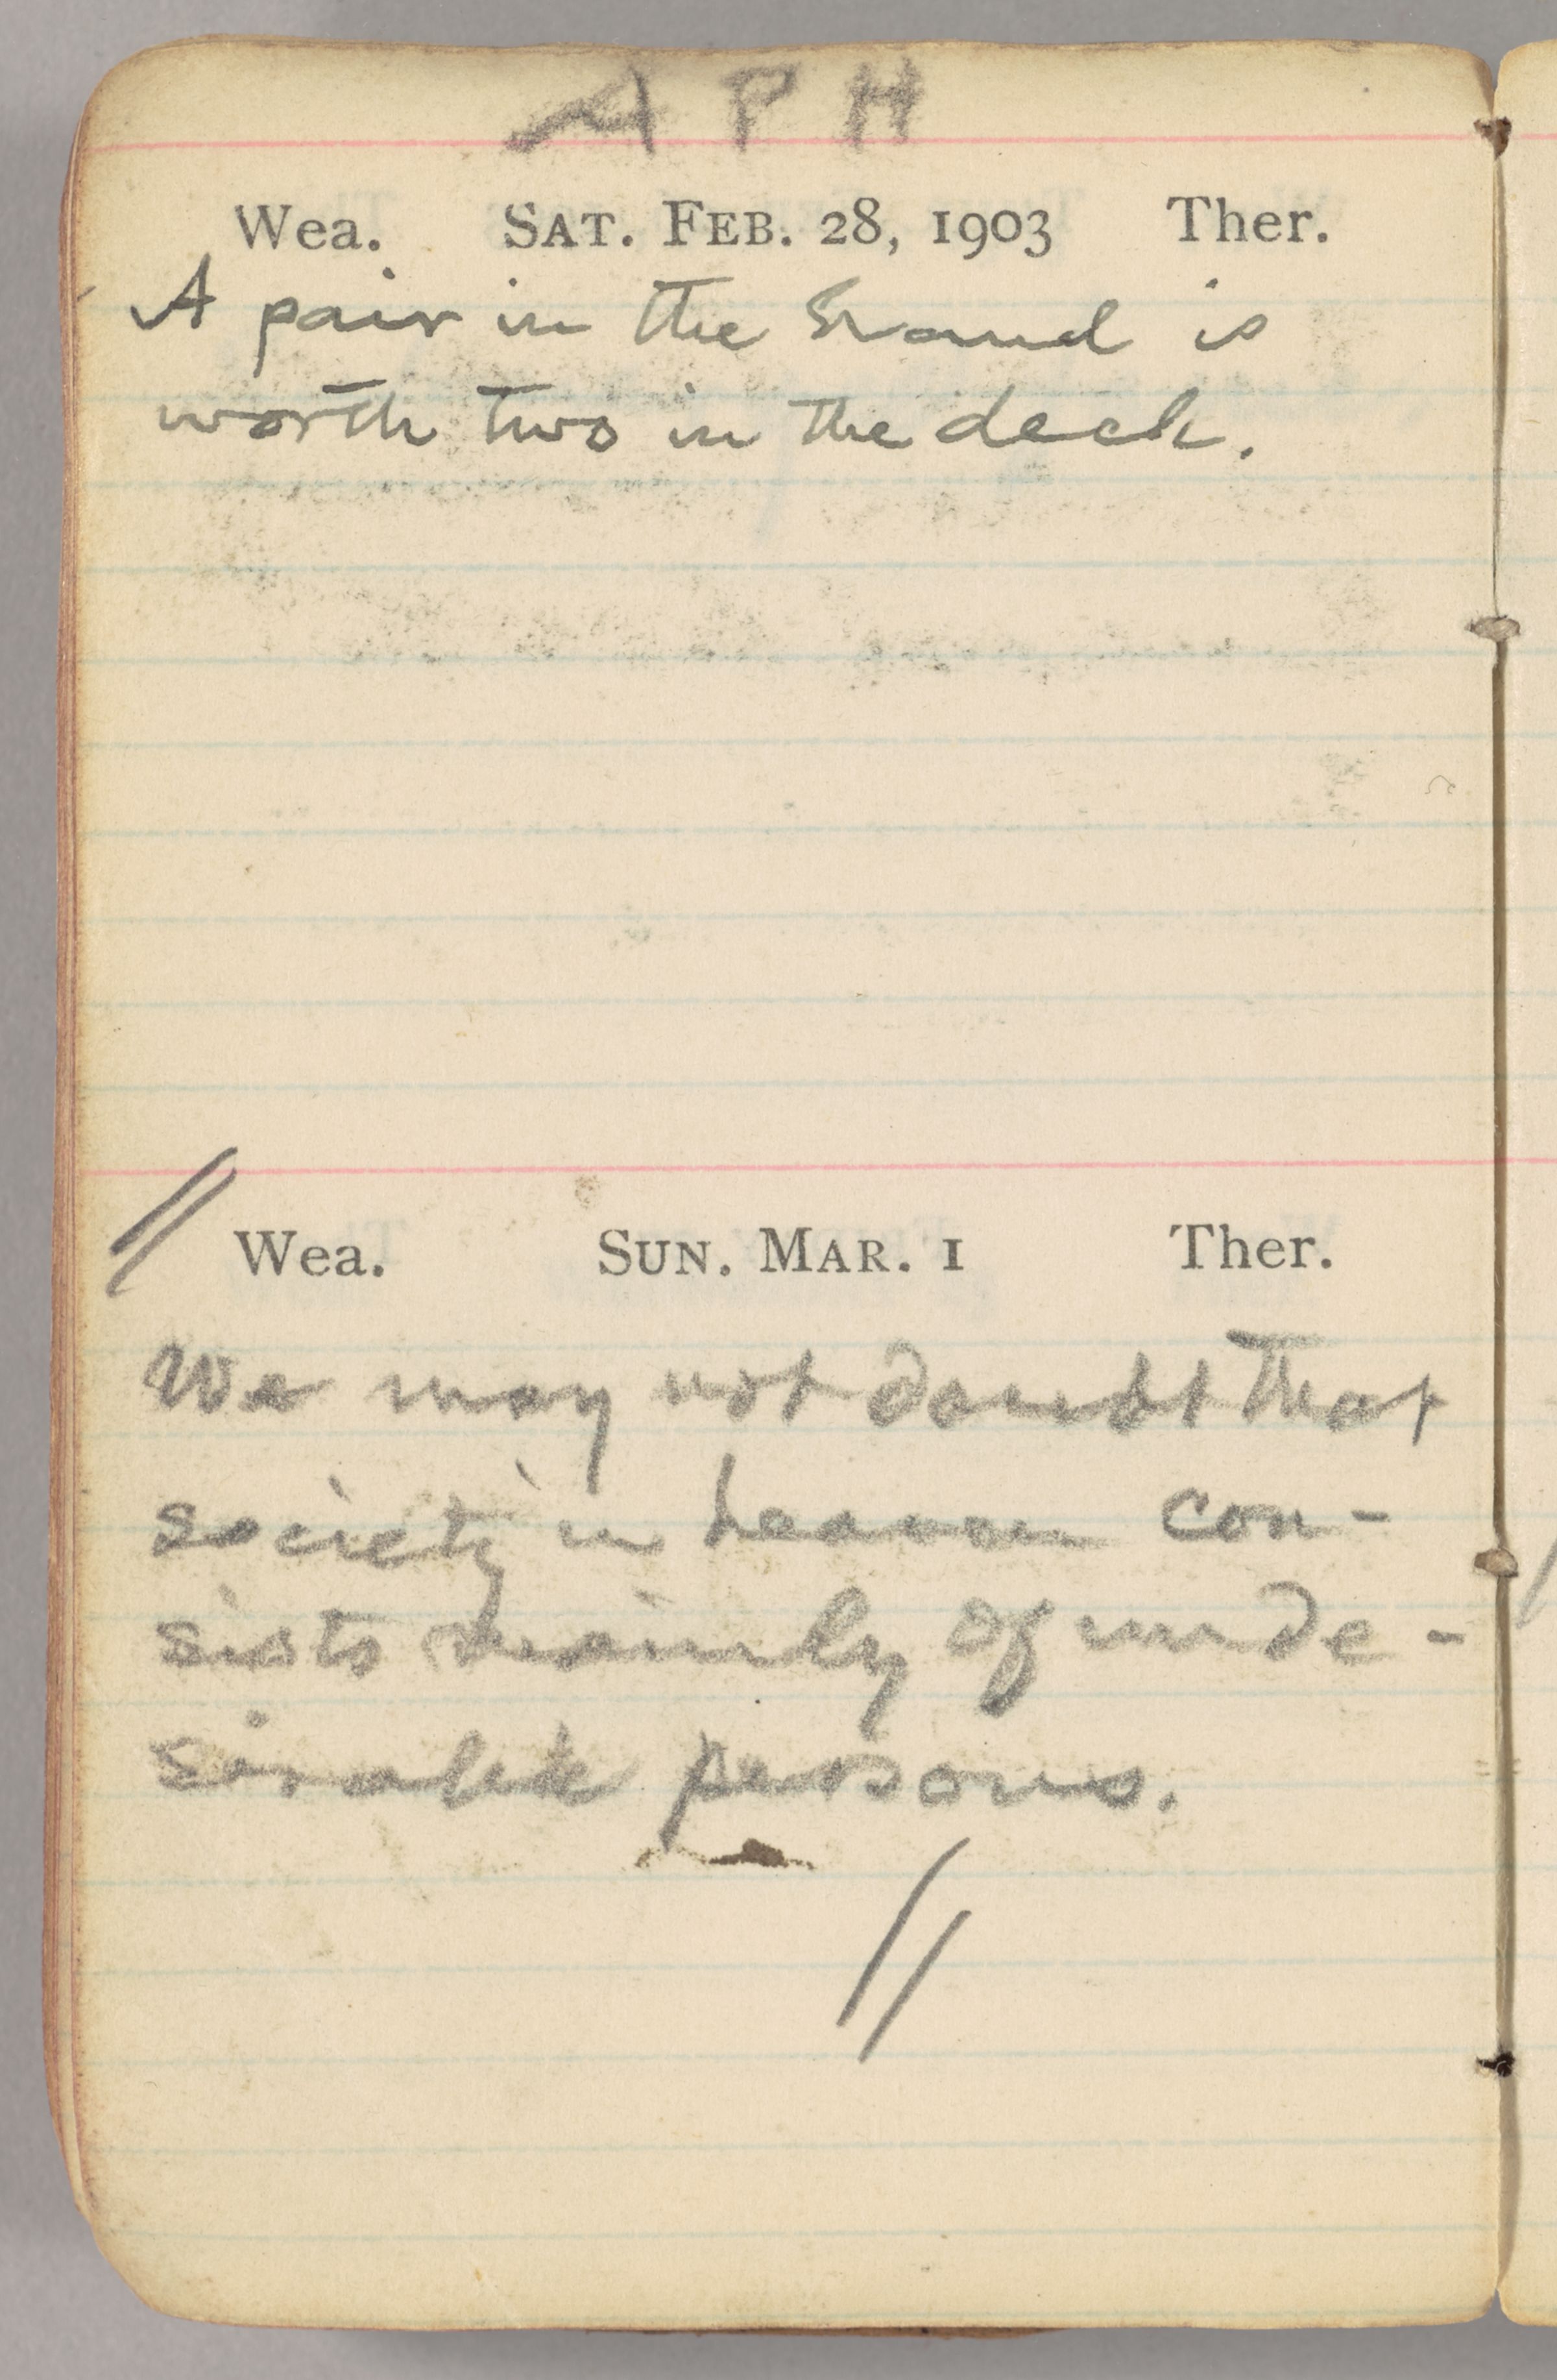 A P H
Wea. SAT. FEB. 28, 1903 Ther.
A pair in the hand is
worth two in the deck.
Wea. SUN. MAR. 1 Ther.
We may not doubt that
society in heaven con-
sists mainly of unde-
sirable persons.